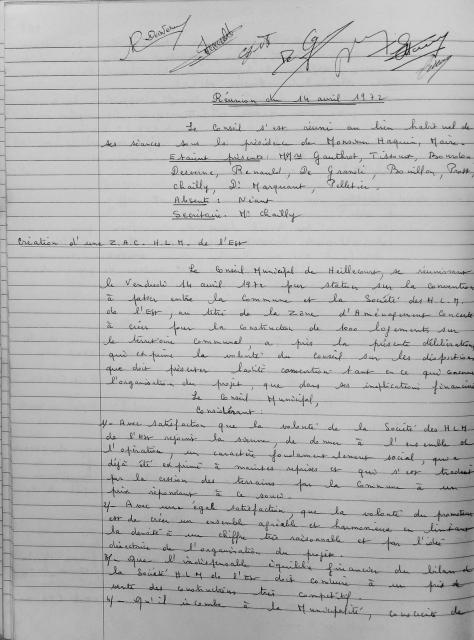 Réunion du 14 avril 1972
Le Conseil s'est réuni au lieu habituel de
ses séances sous la présidence de Monsieur Haquin, Maire.
Etaient présents : MM. Gauthrot, Tissout,
Desverne, Renauld, De Grandi, Bouillon, Prott,
Chailly, Dr Marquant, Pelletier.
Absents : Néant
Secrétaire. Mr Chailly
Création d'une Z.A.C. H.L.M. de l'Est
Le Conseil Municipal de Heillecourt, se réunissant
le Vendredi 14 avril 1972 pour statuer sur la Convention
à passer entre la Commune et la Société des H.L.M.
de l'Est, au titre de la Zone d'Aménagement Concerté
à créer pour la construction de 1000 logements sur
le territoire communal, a pris la présente délibération
qui exprime la volonté du Conseil sur les dispositions
que doit présenter ladite convention tant en ce qui concerne
l'organisation du projet, que dans ses implications financières
Le Conseil Municipal,
Considérant :
1/- Avec satisfaction que la volonté de la Société des HLM
de l'Est rejoint la sienne, de donner à l'ensemble de
l'opération, un caractère fondamentalement social, qui a
déjà été exprimé à maintes reprises et qui s'est traduit
par la cession des terrains par la Commune à un
prix répondant à ce souci.
2/- Avec une égale satisfaction, que la volonté du promoteur
est de créer un ensemble agréable et harmonieux en limitant
la densité à un chiffre très raisonnable et par l'idée
directrice de l'organisation du projet.
3/- Que l'indispensable équilibre financier du bilan de
la Société HLM de l'Est doit conduire à un prix de
vente des constructions très compétitif.
4/- Qu'il incombe à la Municipalité, consciente de